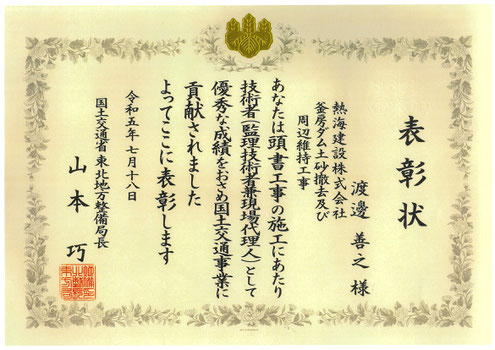 表彰状
熱海建設株式会社
釜房ダム土砂撤去及び
周辺維持工事
渡邊善之様
あなたは頭書工事の施工にあたり
技術者(監理技術者兼現場代理人)として
優秀な成績をおさめ国土交通事業に
貢献されました
よってここに表彰します
令和五年七月十八日
国土交通省東北地方整備局長
山本巧